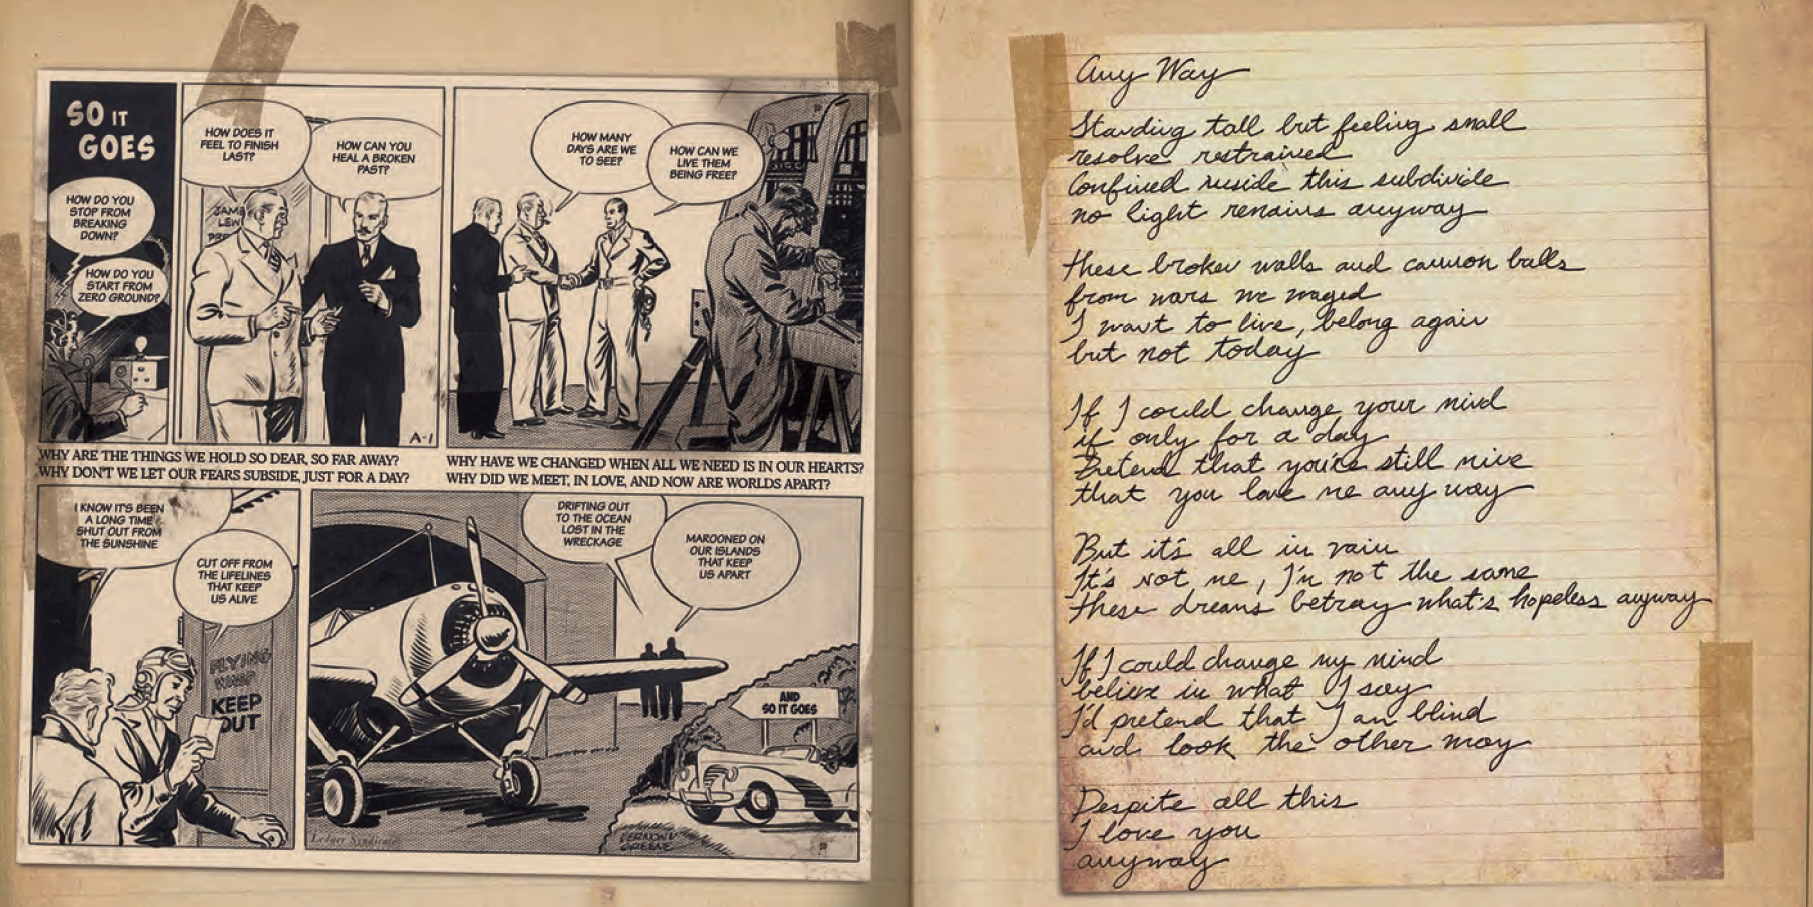 SO IT
GOES
HOW DO YOU
STOP FROM
BREAKING
DOWN?
HOW DO YOU
START FROM
ZERO GROUND?
HOW DOES IT
FEEL TO FINISH
LAST?
HOW CAN YOU
HEAL A BROKEN
PAST?
A-1
HOW MANY
DAYS ARE WE
TO SEE?
HOW CAN WE
LIVE THEM
BEING FREE?
WHY ARE THE THINGS WE HOLD SO DEAR, SO FAR AWAY?
WHY DON'T WE LET OUR FEARS SUBSIDE, JUST FOR A DAY?
WHY HAVE WE CHANGED WHEN ALL WE NEED IS IN OUR HEARTS?
WHY DID WE MEET, IN LOVE, AND NOW ARE WORLDS APART?
I KNOW IT'S BEEN
A LONG TIME
SHUT OUT FROM
THE SUNSHINE
CUT OFF FROM
THE LIFELINES
THAT KEEP
US ALIVE
FLYING
KEEP
OUT
DRIFTING OUT
TO THE OCEAN
LOST IN THE
WRECKAGE
MAROONED ON
OUR ISLANDS
THAT KEEP
US APART
AND
SO IT GOES
Ledger Syndicate
VERNON V
GREENE
Any Way
Standing tall but feeling small
resolve restrained
Confined inside this subdivide
no light remains anyway
these broken walls and cannon balls
from wars we waged
I want to live, belong again
but not today
If I could change your mind
if only for a day
Pretend that you're still mine
that you love me any way
But it's all in vain
It's not me, I'm not the same
these dreams betray what's hopeless anyway
If I could change my mind
believe in what I say
I'd pretend that I am blind
and look the other way
Despite all this
I love you
anyway